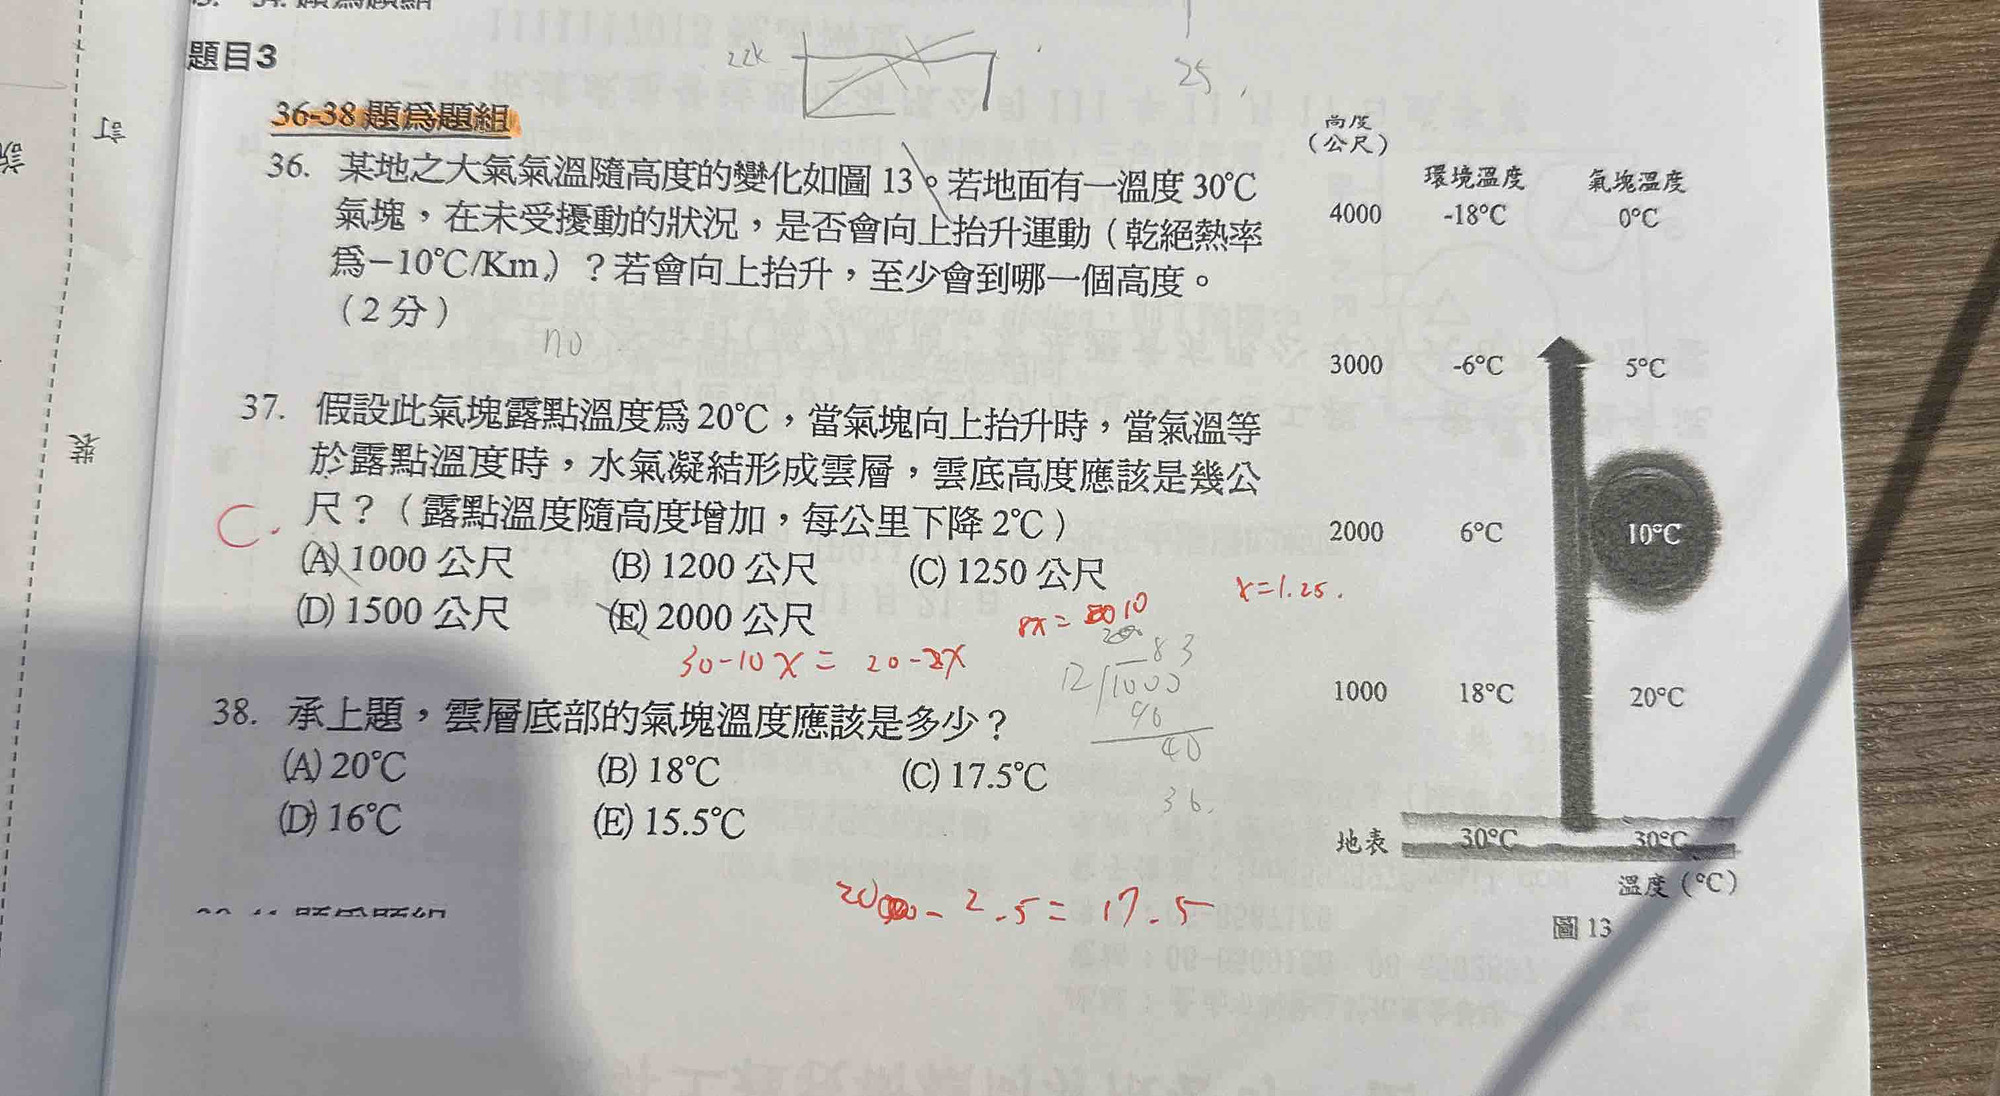 題目3
22k
25
36-38 題為題組
36. 某地之大氣氣溫隨高度的變化如圖 13。若地面有一溫度 30℃
氣塊，在未受擾動的狀況，是否會向上抬升運動（乾絕熱率
為－10℃/Km）？若會向上抬升，至少會到哪一個高度。
（2 分）
no
37. 假設此氣塊露點溫度為 20℃，當氣塊向上抬升時，當氣溫等
於露點溫度時，水氣凝結形成雲層，雲底高度應該是幾公
尺？（露點溫度隨高度增加，每公里下降 2℃）
C.
(A) 1000 公尺 (B) 1200 公尺 (C) 1250 公尺
(D) 1500 公尺 (E) 2000 公尺
8x = 10
x=1.25.
30-10x = 20-2x
83
12 1000
96
40
36.
38. 承上題，雲層底部的氣塊溫度應該是多少？
(A) 20℃ (B) 18℃ (C) 17.5℃
(D) 16℃ (E) 15.5℃
20 - 2.5 = 17.5
高度
（公尺）
環境溫度 氣塊溫度
4000 -18°C 0°C
3000 -6°C 5°C
2000 6°C 10°C
1000 18°C 20°C
地表 30°C 30°C
溫度 (°C)
圖 13
訂
裝